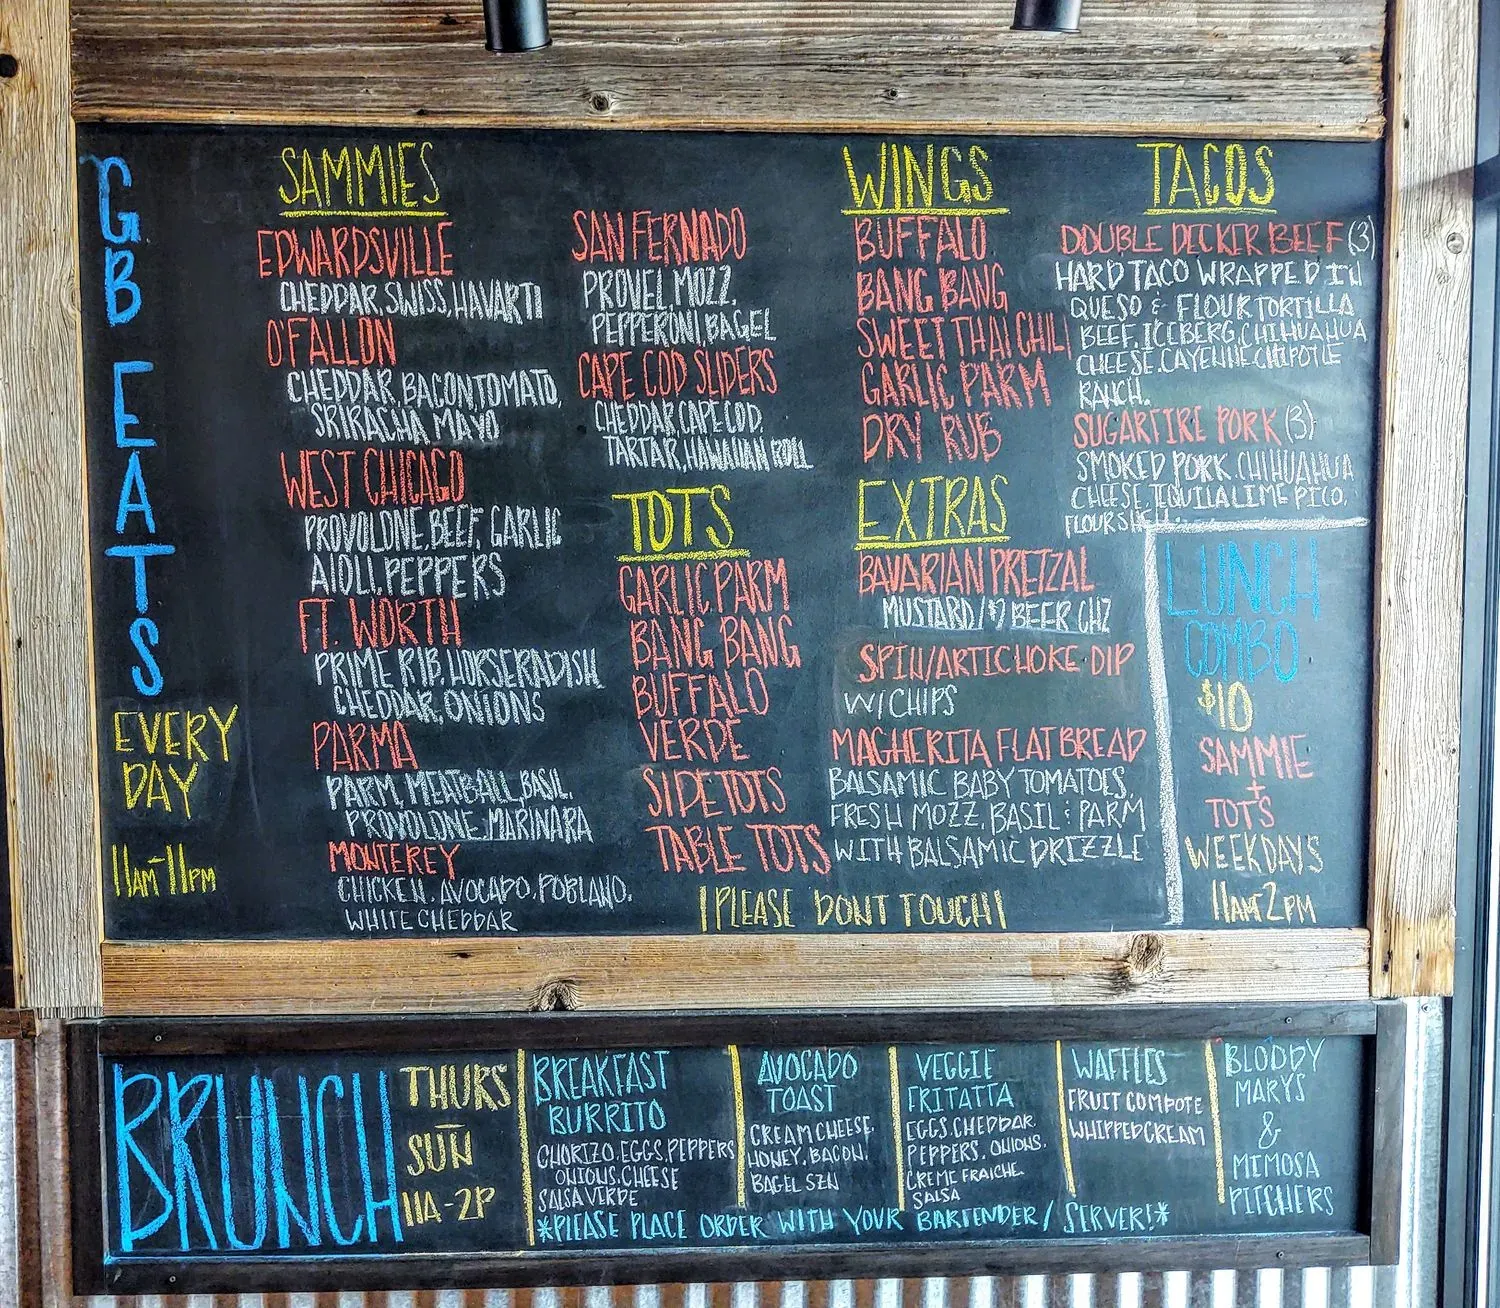 GB EATS
EVERY
DAY
11AM-11PM
SAMMIES
EDWARDSVILLE
CHEDDAR, SWISS, HAVARTI
O'FALLON
CHEDDAR, BACON, TOMATO,
SRIRACHA MAYO
WEST CHICAGO
PROVOLONE, BEEF, GARLIC
AIOLI, PEPPERS
FT. WORTH
PRIME RIB, HORSERADISH,
CHEDDAR, ONIONS
PARMA
PARM, MEATBALL, BASIL,
PROVOLONE, MARINARA
MONTEREY
CHICKEN, AVOCADO, POBLANO,
WHITE CHEDDAR
SAN FERNADO
PROVEL, MOZZ,
PEPPERONI, BAGEL
CAPE COD SLIDERS
CHEDDAR, CAPE COD,
TARTAR, HAWAIIAN ROLL
TOTS
GARLIC PARM
BANG BANG
BUFFALO
VERDE
SIDE TOTS
TABLE TOTS
WINGS
BUFFALO
BANG BANG
SWEET THAI CHILI
GARLIC PARM
DRY RUB
EXTRAS
BAVARIAN PRETZAL
MUSTARD/$2 BEER CHZ
SPIN/ARTICHOKE DIP
W/CHIPS
MAGHERITA FLATBREAD
BALSAMIC BABY TOMATOES,
FRESH MOZZ, BASIL & PARM
WITH BALSAMIC DRIZZLE
!PLEASE DONT TOUCH!
TACOS
DOUBLE DECKER BEEF (3)
HARD TACO WRAPPED IN
QUESO & FLOUR TORTILLA
BEEF, ICEBERG, CHIHUAHUA
CHEESE, CAYENNE CHIPOTLE
RANCH.
SUGARFIRE PORK (3)
SMOKED PORK, CHIHUAHUA
CHEESE, TEQUILA LIME PICO,
FLOUR SHELL.
LUNCH
COMBO
$10
SAMMIE
+
TOTS
WEEKDAYS
11AM-2PM
BRUNCH
THURS
-
SUN
11A-2P
BREAKFAST
BURRITO
CHORIZO, EGGS, PEPPERS
ONIONS, CHEESE
SALSA VERDE
AVOCADO
TOAST
CREAM CHEESE,
HONEY, BACON,
BAGEL SZN
VEGGIE
FRITATTA
EGGS, CHEDDAR,
PEPPERS, ONIONS,
CREME FRAICHE,
SALSA
WAFFLES
FRUIT COMPOTE
WHIPPED CREAM
BLODDY
MARYS
&
MIMOSA
PITCHERS
*PLEASE PLACE ORDER WITH YOUR BARTENDER/SERVER!*